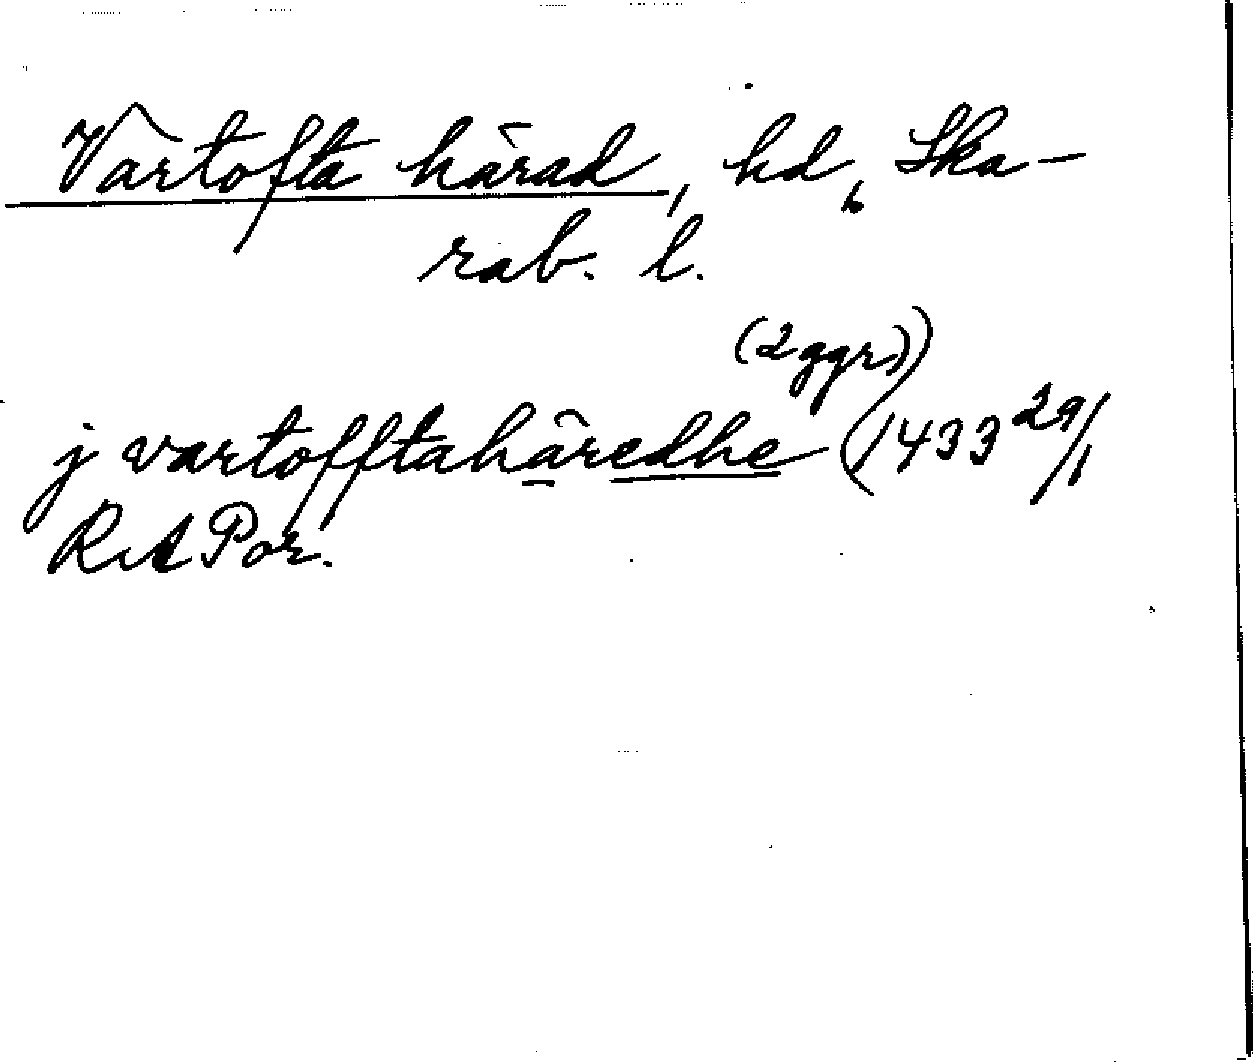 Vartofta härad, hd, Ska-
rab. l.
(2 ggr)
j vartofftahäredhe (1433 29/1
RAPor.